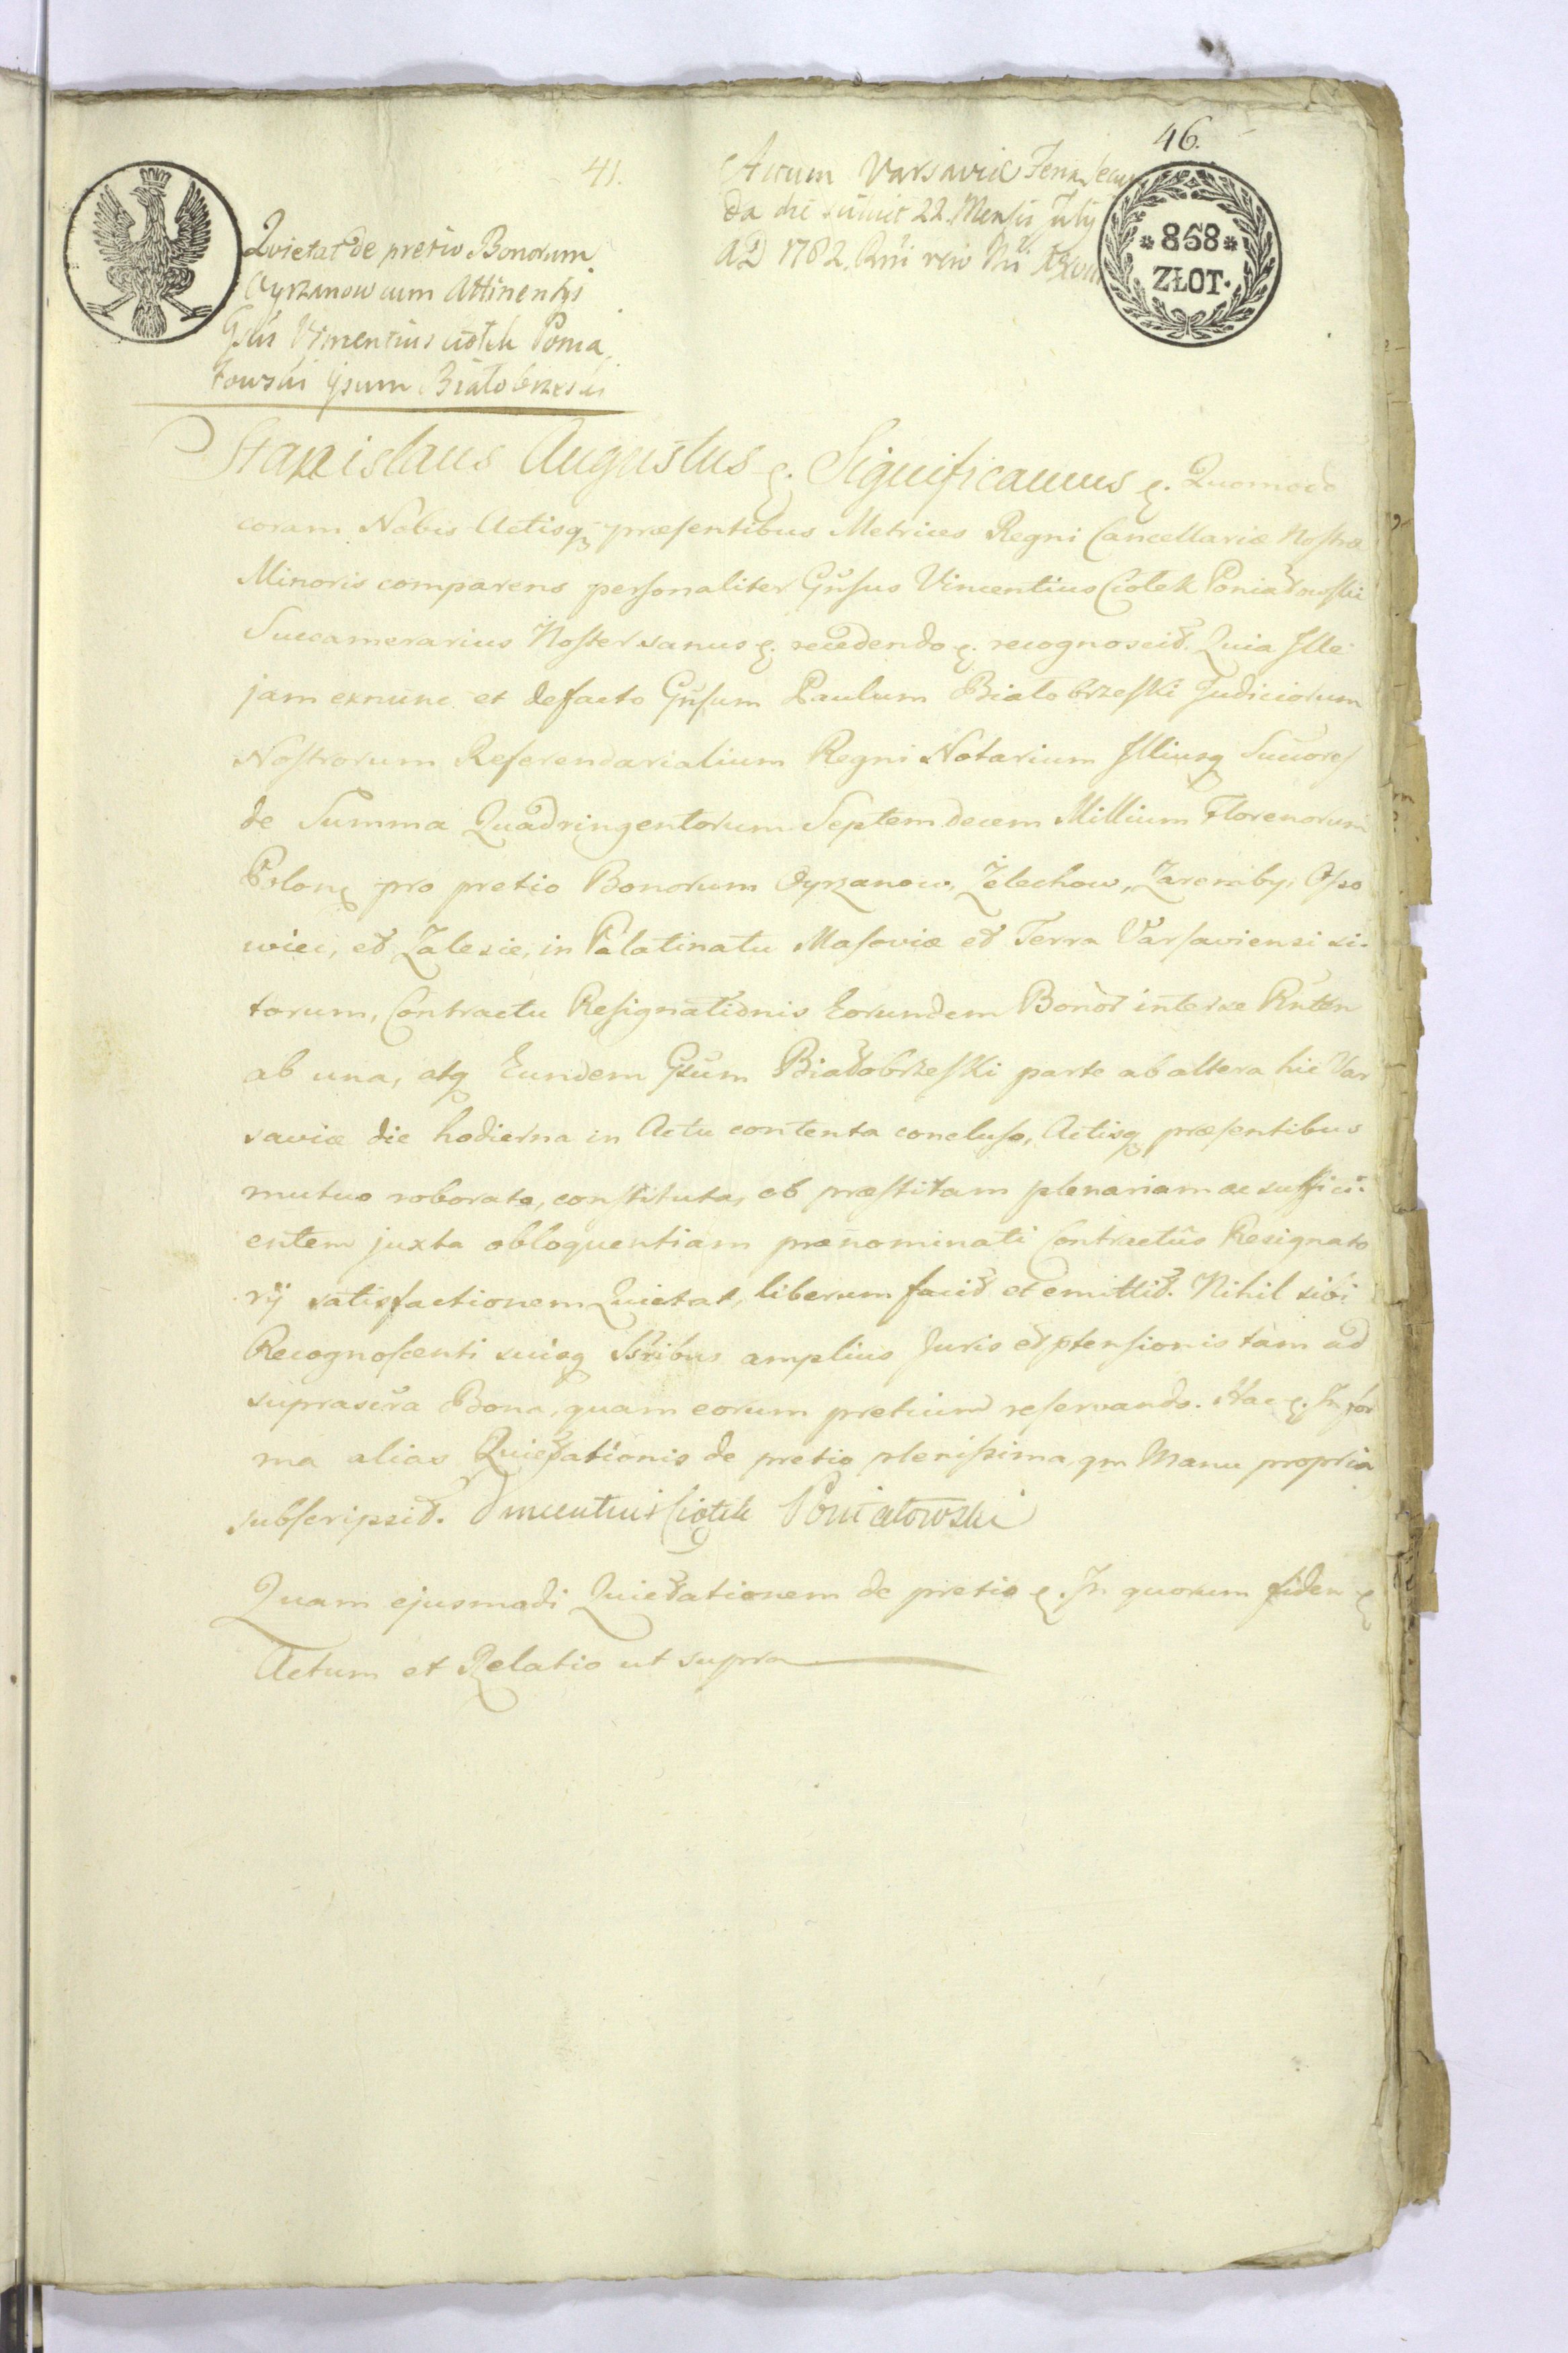 46.
41.
Actum Varsaviæ Feria secun
da die scilicet 22. Mensis Julij
AD 1782. Rni vero Nri
*868*
ZŁOT.
Quietat de pretio Bonorum
Oyrzanow cum Attinentijs
Gsus Vincentius Ciołek Ponia
towski Gsum Białobrzeski
Stanislaus Augustus &. Significamus &. Quomodo
coram Nobis Actisq præsentibus Metrices Regni Cancellariæ Nostræ
Minoris comparens personaliter Gnsus Vincentius Ciołek Poniatowski
Succamerarius Noster sanus &. recedendo &. recognoscit. Quia Ille
jam exnunc et defacto Gnsum Paulum Białobrzeski Judiciorum
Nostrorum Referendarialium Regni Notarium Illiusq Succores
de Summa Quadringentorum Septemdecem Millium Florenorum
Polon pro pretio Bonorum Oyrzanow, Żelechow, Zaremby, Osso
wiec, et Zalesie, in Palatinatu Masoviæ et Terra Varsaviensi si-
torum, Contractu Resignationis Eorundem Bonor inter se Rntten
ab una, atq Eundem Gsum Białobrzeski parte ab altera hic Var
saviæ die hodierna in Actu contenta concluso, Actisq præsentibus
mutuo roborato, constituta, ob præstitam plenariam ac suffici-
entem juxta obloquentiam prænominati Contractûs Resignato
rij satisfactionem Quietat, liberum facit et emittit. Nihil sibi
Recognoscenti suisq Ssribus amplius Juris et ptensionis tàm ad
suprascra Bona, quam eorum pretium reservando. Hac &. In for
ma alias Quietationis de pretio plenissima, qm Manu propria
subscripsit. Vincentius Ciołek Poniatowski
Quam ejusmodi Quietationem de pretio &. In quorum fidem &
Actum et Relatio ut supra